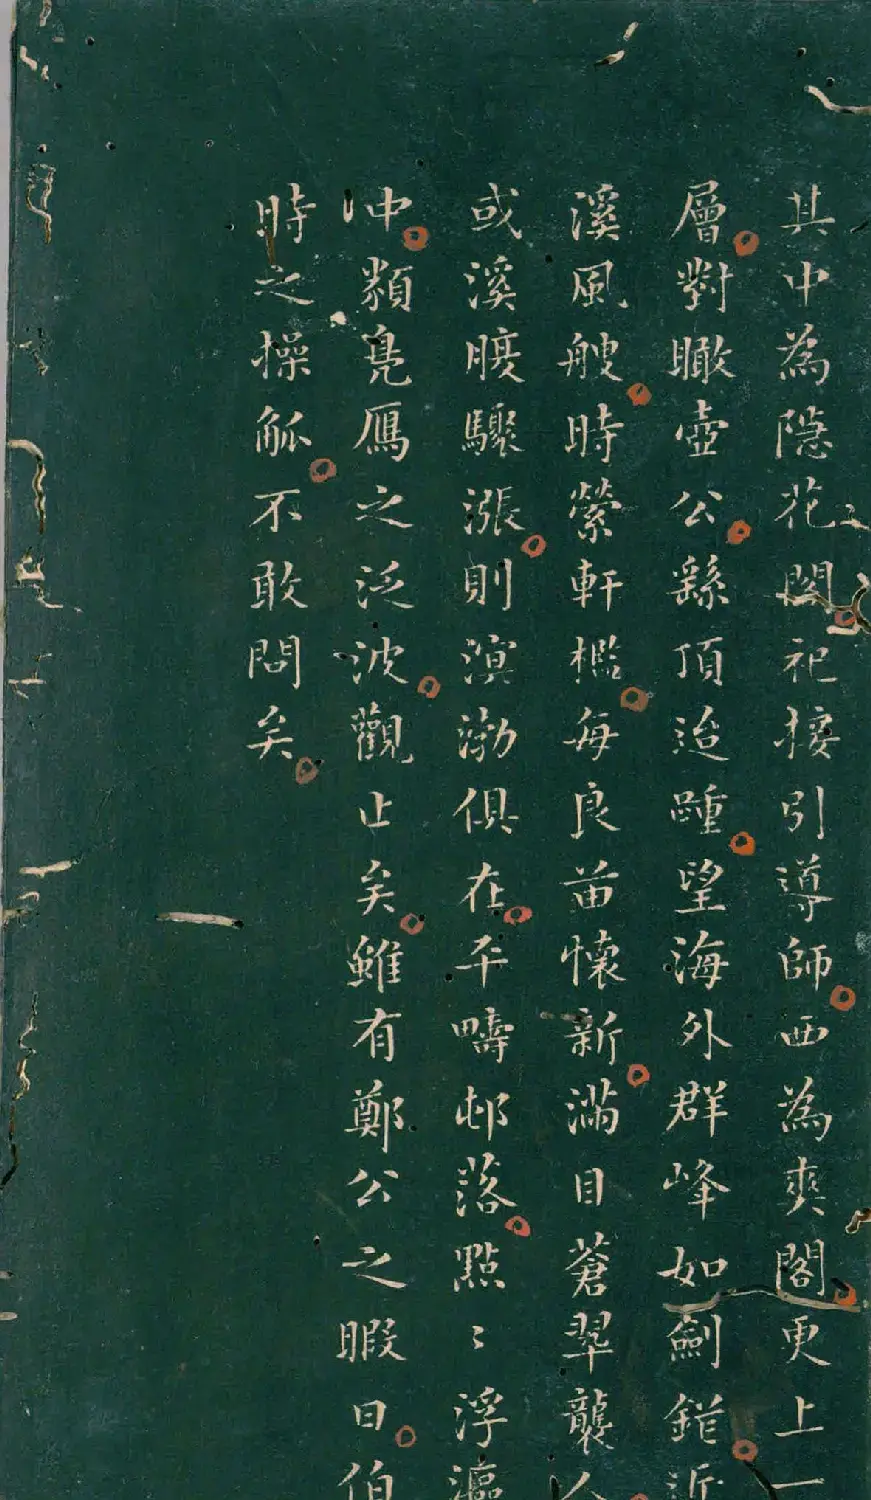 其中為隱花閣祀接引導師西為爽閣更上一
層對瞰壺公繇頂迨踵望海外群峰如劍鋩近
溪風艘時縈軒檻每良苗懷新滿目蒼翠襲人
或溪腠驟漲則溟渤俱在平疇邨落點〻浮漚
中類鳧鴈之泛波觀止矣雖有鄭公之暇日伯
時之操觚不敢問矣